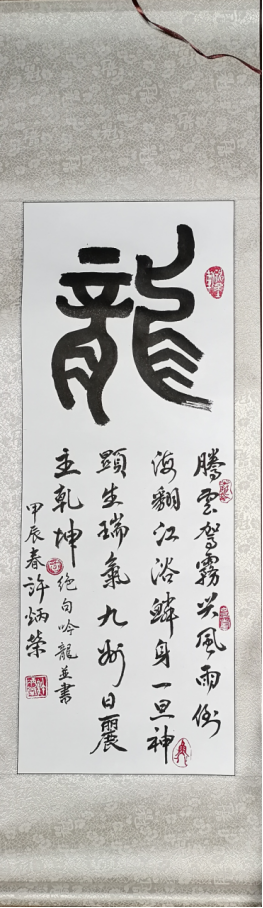 龍
騰雲駕霧兴風雨倒
海翻江浴鱗身一旦神
顯生瑞氣九州日麗
主乾坤
絶句吟龍並書
甲辰春許炳榮